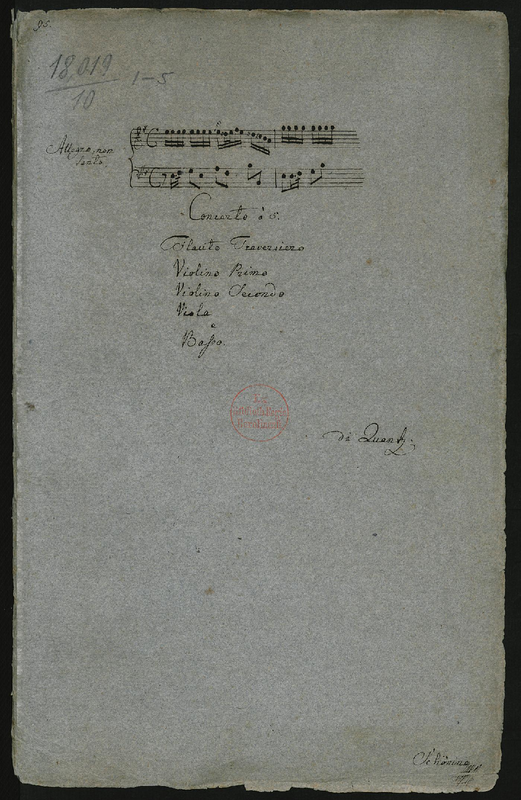 95.
18,019
10
1-5
Allegro, non
Concerto à 5.
Flauto Traversiero
Violino Primo
Violino Secondo
Viola
e
Basso.
da Quantz.